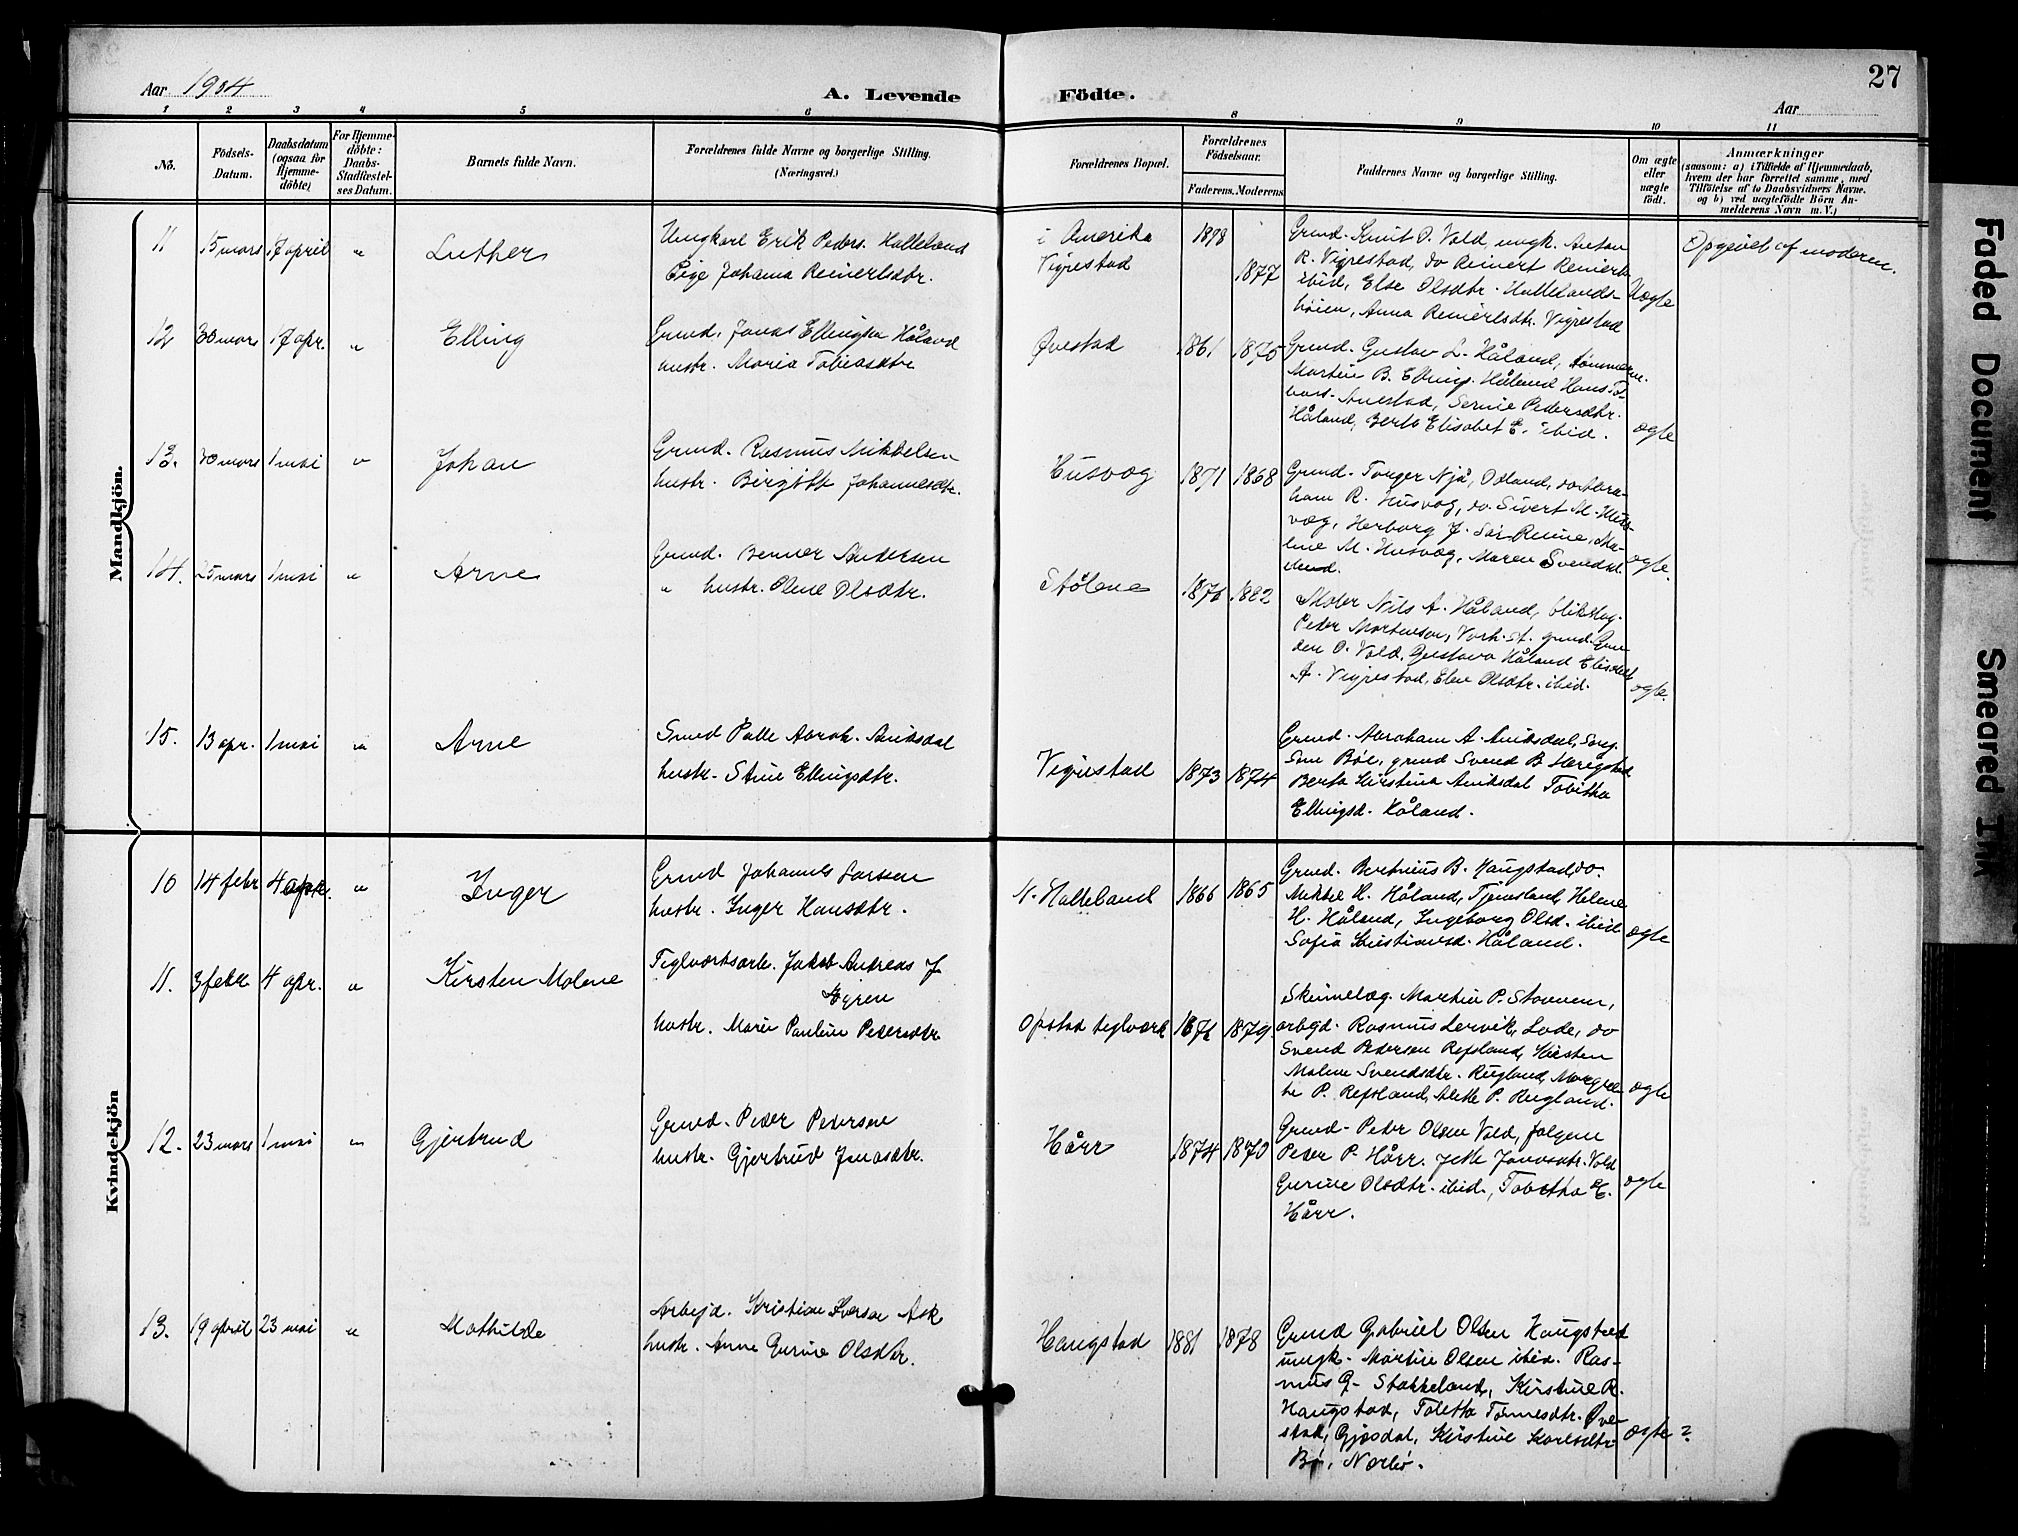 27
Aar 1904
A. Levende Födte.
Aar
1 2 3 4 5 6 8 9 10 11
No.
Födsels-Datum.
Daabsdatum (ogsaa for Hjemme-döbte)
For Hjemme-döbte: Daabs-Stadfæstel-ses Datum.
Barnets fulde Navn.
Forældrenes fulde Navne og borgerlige Stilling. (Næringsvei.)
Forældrenes Bopæl.
Forældrenes Födselsaar.
Faderens. Moderens.
Faddernes Navne og borgerlige Stilling.
Om ægte eller uægte födt.
Anmærkninger
(saasom: a) i Tilfælde af Hjemmedaab, hvem der har forrettet samme, med Tilföielse af to Daabsvidners Navne. og b) ved uægtefödte Börn An-melderens Navn m. V.)
Mandkjön.
11 15 mars 17 april " Luther
Ungkarl Erik Peders. Halleland
Pige Johanna Reinertsdtr.
i Amerika 1878
Vigrestad 1877
Grund. Knut O. Vold, ungk. Anton
R. Vigrestad, do Reinert Reinert
ibid, Else Olsdtr. Hallelands-
høien, Anna Reinertsdtr. Vigrestad
Uægte
Opgivet af moderen.
12 30 mars 17 apr. " Elling
Grund. Jonas Ellingsen Håland
hustr. Maria Tobiasdtr
Øvestad 1861 1875
Grund. Gustav L. Håland, tømmerm.
Martin B. Elling. Håland Hans T.
Anestad, Serine Pedersdtr.
Håland, Berta Elisabet E. ibid.
ægte
13. 30 mars 1 mai " Johan
Grund. Rasmus Mikkelsen
hustr. Birgitte Johannesdtr.
Husvæg 1871 1868
Grund. Tonger Njå, Ødland, do Abra-
ham R. Husvæg, do. Sivert M. Hus-
væg, Herborg J. Sør Reime, Ma-
line M. Husvæg, Maren Svendsd.
ibid.
ægte.
14. 25 mars 1 mai " Arne
Grund. Berner Andersen
" hustr. Oline Olsdtr.
Stølene 1876 1882
Maler Nils A. Håland, blikslag.
Peter Mortensen, Varh. st. grund. Gun
der O. Vold, Gustava Håland Elisabet
A. Vigrestad, Elen Olsdtr. ibid.
ægte.
15. 13 apr. 1 mai " Arne
Smed Palle Abrah. Aniksdal
hustr. Stine Ellingsdtr.
Vigrestad 1873 1874
Grund. Abraham A. Aniksdal, Sereg.
Sem Bøe, grund Svend B. Haugstad
Berta Kirstina Aniksdal Tobitha
Ellingsd. Håland.
Kvindekjön
10 14 febr 4 apr. " Inger
Grund Johannes Larsen
hustr. Inger Hansdtr.
N. Halleland 1866 1865
Grund. Bertinius B. Haugstad, do.
Mikkel H. Håland, Tjemsland, Helene
H. Håland, Ingeborg Olsd. ibid
Sofia Kristiansd. Håland.
ægte
11. 3 febr 4 apr. " Kirsten Malene
Teglværksarb. Jakob Andreas J
Gyren
hustr. Marie Pauline Pedersdtr
Opstad teglværk 1872 1879.
Skinnelæg. Martin P. Stavnem,
arbejd. Rasmus Lervik, Lode, do
Svend Pedersen Refsland, Kirsten
Malene Svendsdtr. Rugland, Margre-
te P. Refsland, Alette P. Rugland.
ægte
12. 23 mars 1 mai " Gjertrud
Grund. Peder Pedersen
hustr. Gjertrud Jonasdtr.
Hårr 1874 1870
Grund. Peder Olsen Vold, følgem
Peder P. Hårr. Jette Jonasdtr. Vold
Gurine Olsdtr. ibid., Tobitha E.
Hårr.
ægte
13. 19 april 23 mai " Mathilde
Arbejd. Kristian Iversen Ask
hustr. Anne Gurine Olsdtr.
Haugstad 1881 1878
Grund Gabriel Olsen Haugstad
ungk. Martin Olsen ibid. Ras-
mus G. Stokkeland, Kirstine R.
Haugstad, Taletta Tønnesdtr. Øve-
stad, Gjesdal, Kirstine Karlsdtr
Bø, Nærbø.
ægte ?
Faded Document
Smeared Ink